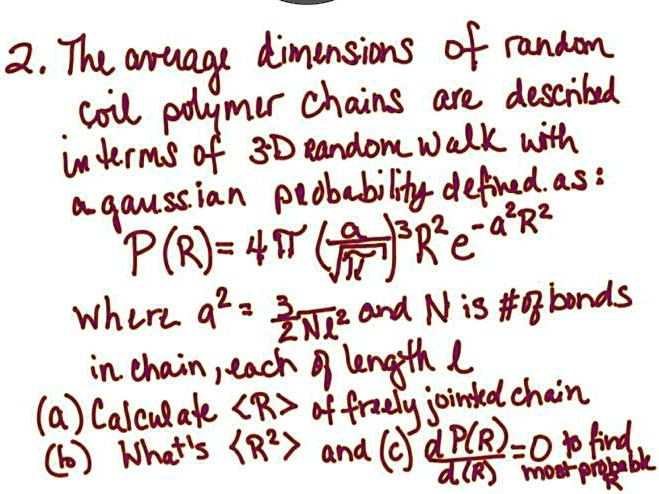 2. The average dimensions of random
coil polymer chains are described
in terms of 3-D random walk with
a gaussian probability defined as:
P(R) = 4π (a/√π)³ R² e^(-a²R²)
where a² = 3/(2Nl²) and N is # of bonds
in chain, each of length l
(a) Calculate <R> of freely jointed chain
(b) What's <R²> and (c) dP(R)/d(R) = 0 to find
most probable
R